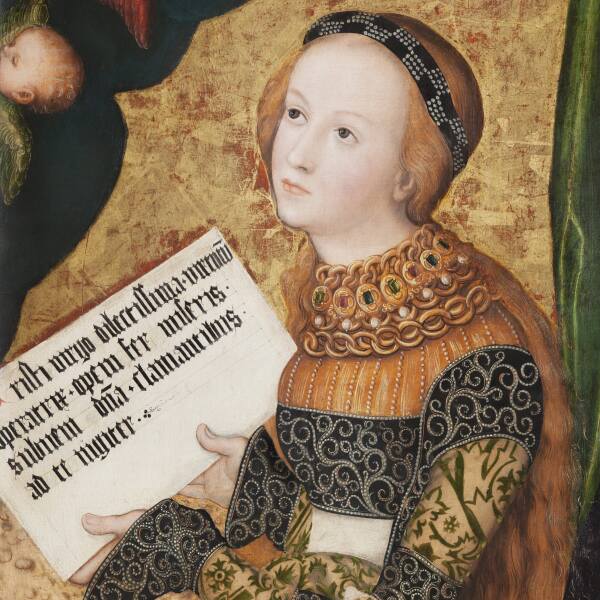 risti virgo dilectissima · virtutū
operatrix · opem fer miseris ·
Subueni dn̄a · clamantibus ·
ad te iugiter